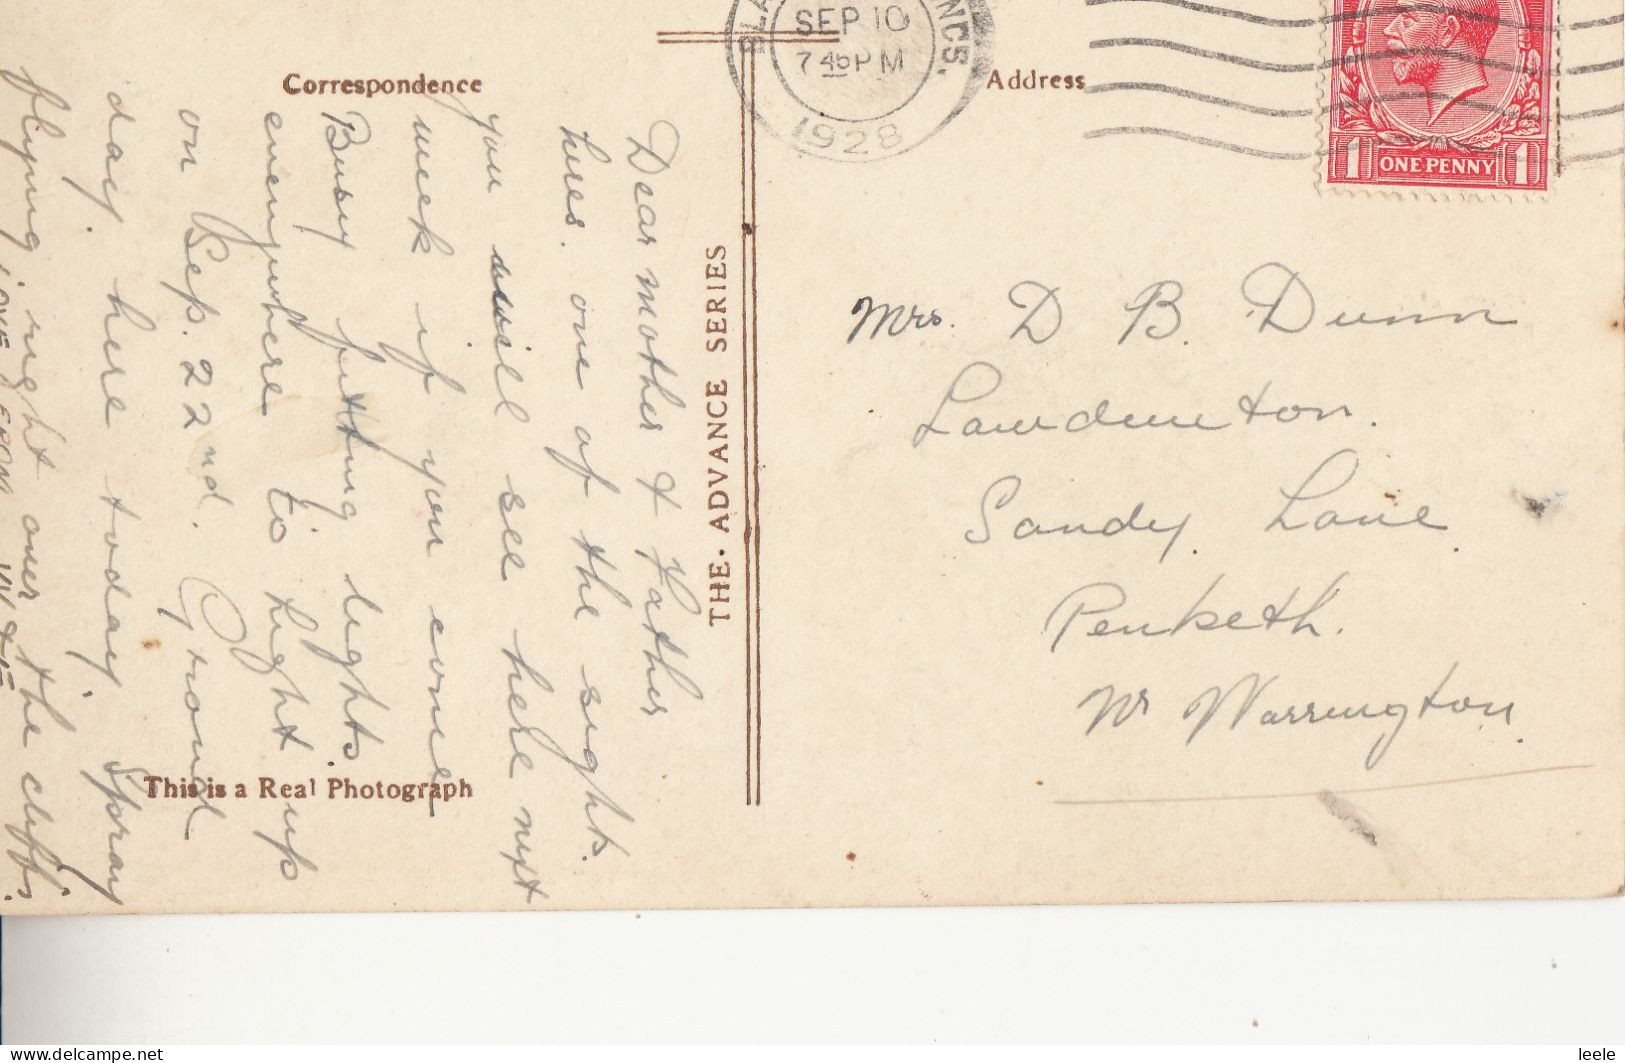 SEP 10
7 45 PM
1928
NCS.
ONE PENNY
1
1
Correspondence
Address
Dear mother & Father
heres one of the sights.
you will see here next
week if you come
Busy fitting lights
everywhere to light up
on Sep. 22nd. Grand
day here today Spray
flying right over the cliffs.
LOVE FROM
THE • ADVANCE SERIES
This is a Real Photograph
Mrs. D B. Dunn
Sandy Lane
Penketh.
Nr Warrington
leele
www.delcampe.net